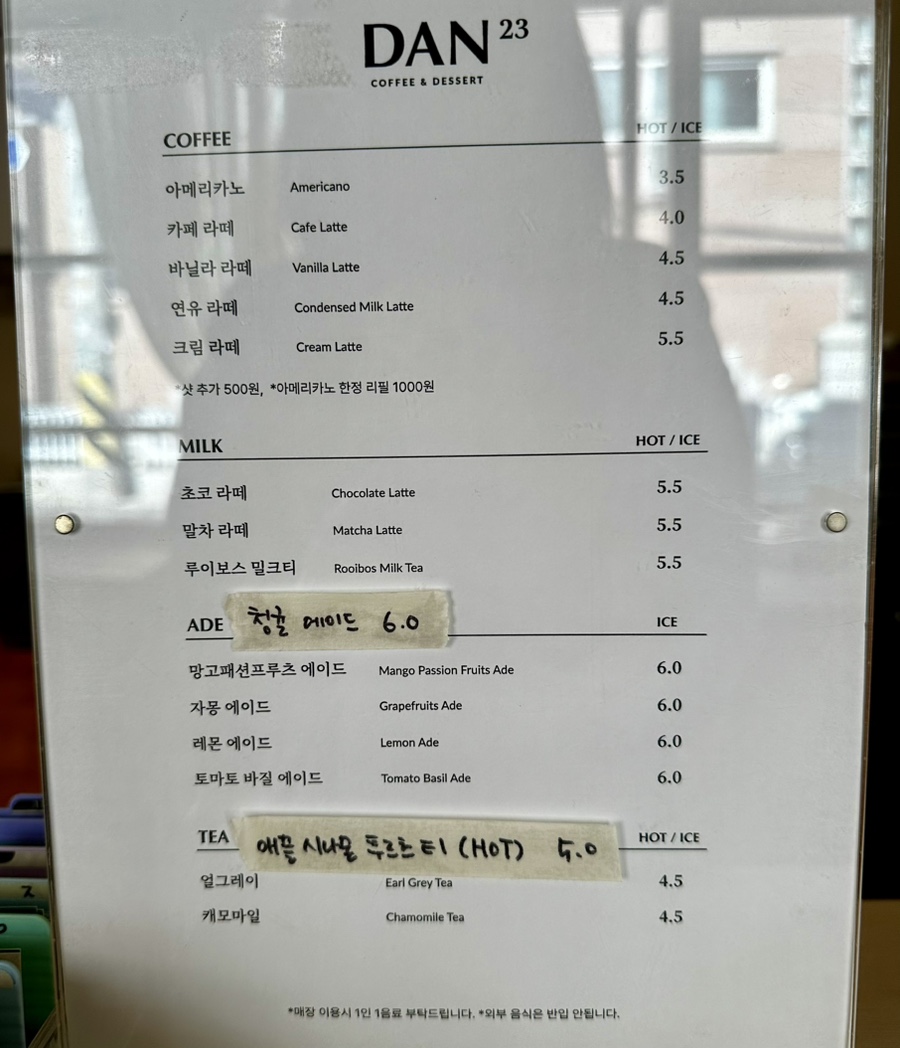 DAN 23
COFFEE & DESSERT
COFFEE HOT / ICE
아메리카노 Americano 3.5
카페 라떼 Cafe Latte 4.0
바닐라 라떼 Vanilla Latte 4.5
연유 라떼 Condensed Milk Latte 4.5
크림 라떼 Cream Latte 5.5
*샷 추가 500원, *아메리카노 한정 리필 1000원
MILK HOT / ICE
초코 라떼 Chocolate Latte 5.5
말차 라떼 Matcha Latte 5.5
루이보스 밀크티 Rooibos Milk Tea 5.5
ADE 청귤 에이드 6.0 ICE
망고패션프루츠 에이드 Mango Passion Fruits Ade 6.0
자몽 에이드 Grapefruits Ade 6.0
레몬 에이드 Lemon Ade 6.0
토마토 바질 에이드 Tomato Basil Ade 6.0
TEA 애플 시나몬 푸르츠 티 (HOT) 5.0 HOT / ICE
얼그레이 Earl Grey Tea 4.5
캐모마일 Chamomile Tea 4.5
*매장 이용시 1인 1음료 부탁드립니다. *외부 음식은 반입 안됩니다.